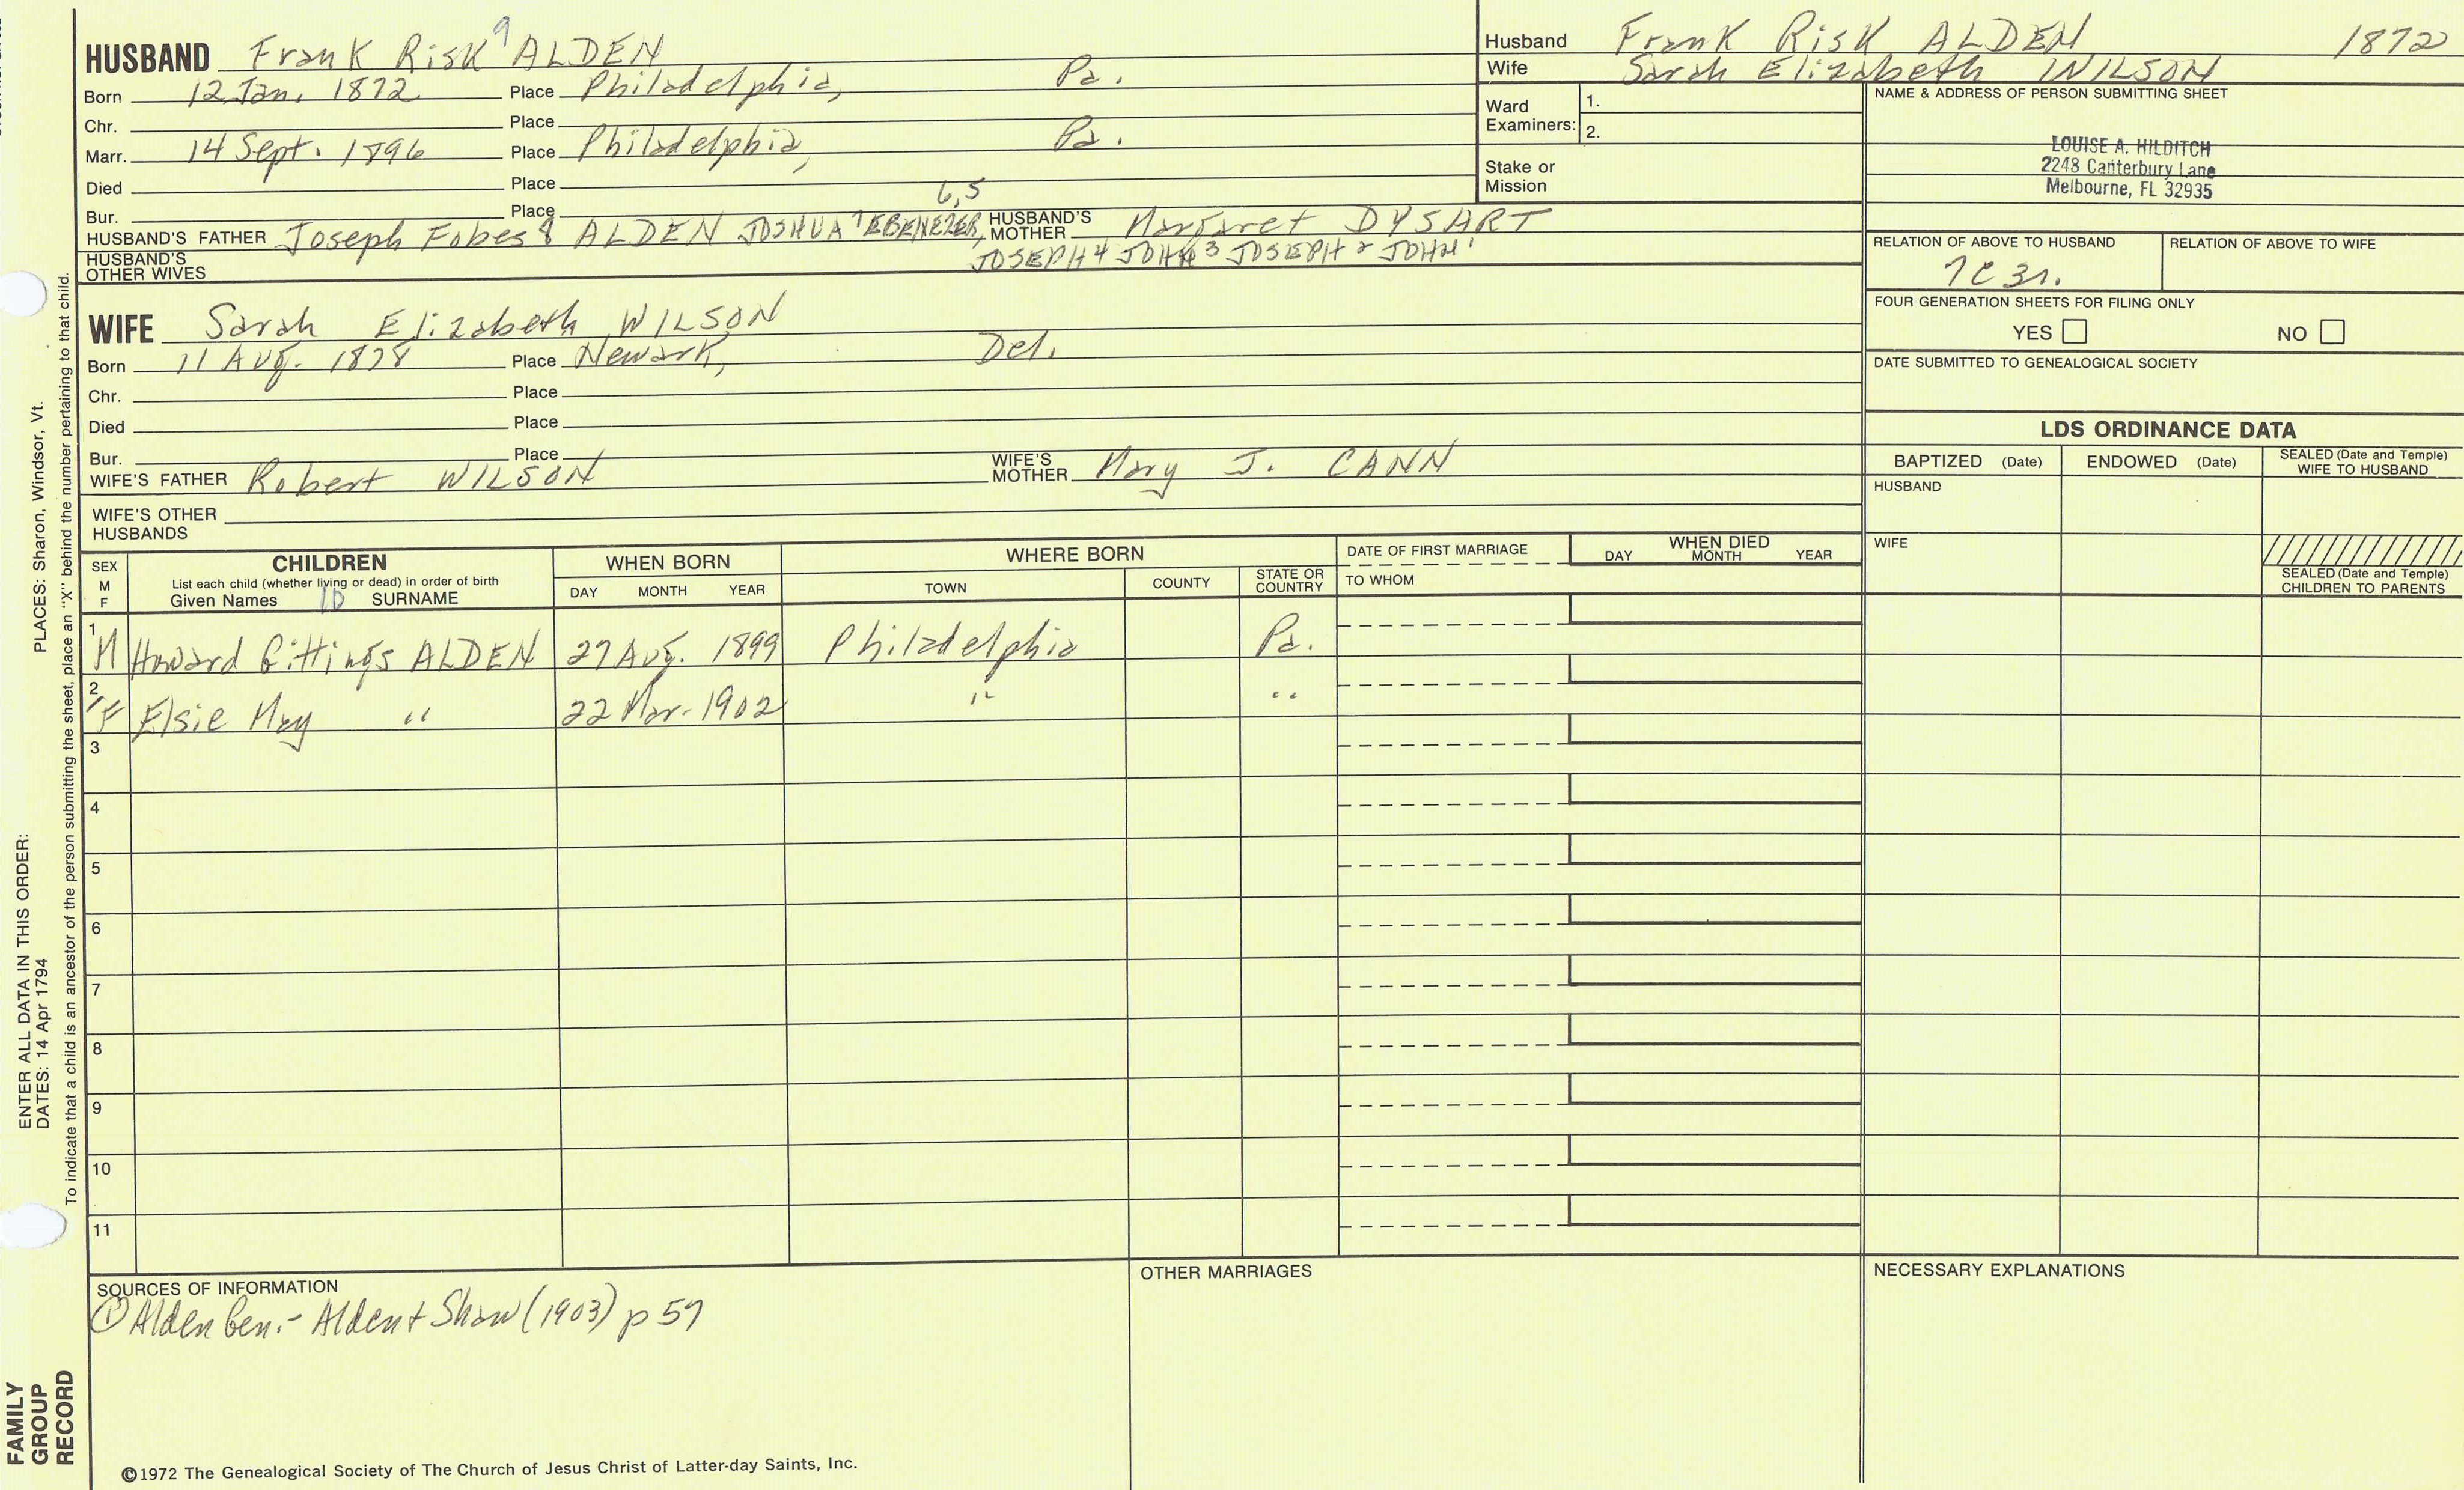 HUSBAND Frank Risk 9 ALDEN
Born 12 Jan. 1872 Place Philadelphia, Pa.
Chr. Place
Marr. 14 Sept. 1896 Place Philadelphia, Pa.
Died Place
Bur. Place
HUSBAND'S FATHER Joseph Fobes 8 ALDEN JOSHUA 7 EBENEZER 6,5 HUSBAND'S MOTHER Margaret DYSART
HUSBAND'S OTHER WIVES JOSEPH 4 JOHN 3 JOSEPH 2 JOHN 1
WIFE Sarah Elizabeth WILSON
Born 11 Aug. 1878 Place Newark, Del.
Chr. Place
Died Place
Bur. Place
WIFE'S FATHER Robert WILSON WIFE'S MOTHER Mary J. CANN
WIFE'S OTHER HUSBANDS
Husband Frank Risk ALDEN 1872
Wife Sarah Elizabeth WILSON
Ward Examiners: 1.
2.
Stake or Mission
NAME & ADDRESS OF PERSON SUBMITTING SHEET
LOUISE A. HILDITCH
2248 Canterbury Lane
Melbourne, FL 32935
RELATION OF ABOVE TO HUSBAND RELATION OF ABOVE TO WIFE
7C 3r.
FOUR GENERATION SHEETS FOR FILING ONLY
YES NO
DATE SUBMITTED TO GENEALOGICAL SOCIETY
LDS ORDINANCE DATA
BAPTIZED (Date) ENDOWED (Date) SEALED (Date and Temple) WIFE TO HUSBAND
HUSBAND
WIFE
SEALED (Date and Temple) CHILDREN TO PARENTS
SEX M F
CHILDREN
List each child (whether living or dead) in order of birth
Given Names 10 SURNAME
WHEN BORN
DAY MONTH YEAR
WHERE BORN
TOWN COUNTY STATE OR COUNTRY
DATE OF FIRST MARRIAGE
TO WHOM
WHEN DIED
DAY MONTH YEAR
1 M Howard Gittings ALDEN 27 Aug. 1899 Philadelphia Pa.
2 F Elsie May " 22 Mar. 1902 " "
3
4
5
6
7
8
9
10
11
SOURCES OF INFORMATION
① Alden Gen. - Alden + Shaw (1903) p 57
OTHER MARRIAGES
NECESSARY EXPLANATIONS
©1972 The Genealogical Society of The Church of Jesus Christ of Latter-day Saints, Inc.
FAMILY GROUP RECORD
ENTER ALL DATA IN THIS ORDER:
DATES: 14 Apr 1794
PLACES: Sharon, Windsor, Vt.
To indicate that a child is an ancestor of the person submitting the sheet, place an "X" behind the number pertaining to that child.